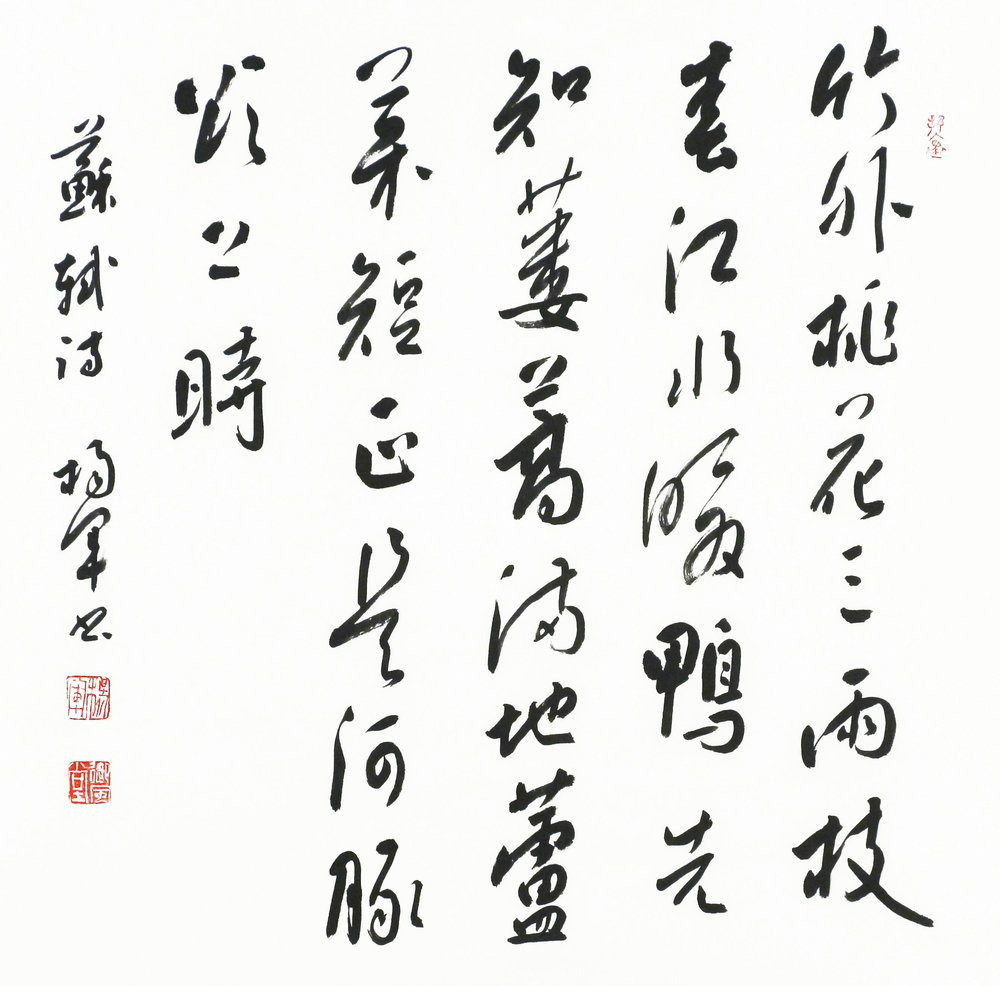 竹外桃花三兩枝
春江水暖鴨先
知蔞蒿滿地蘆
芽短正是河豚
欲上時
蘇軾詩 楊軍書
楊軍